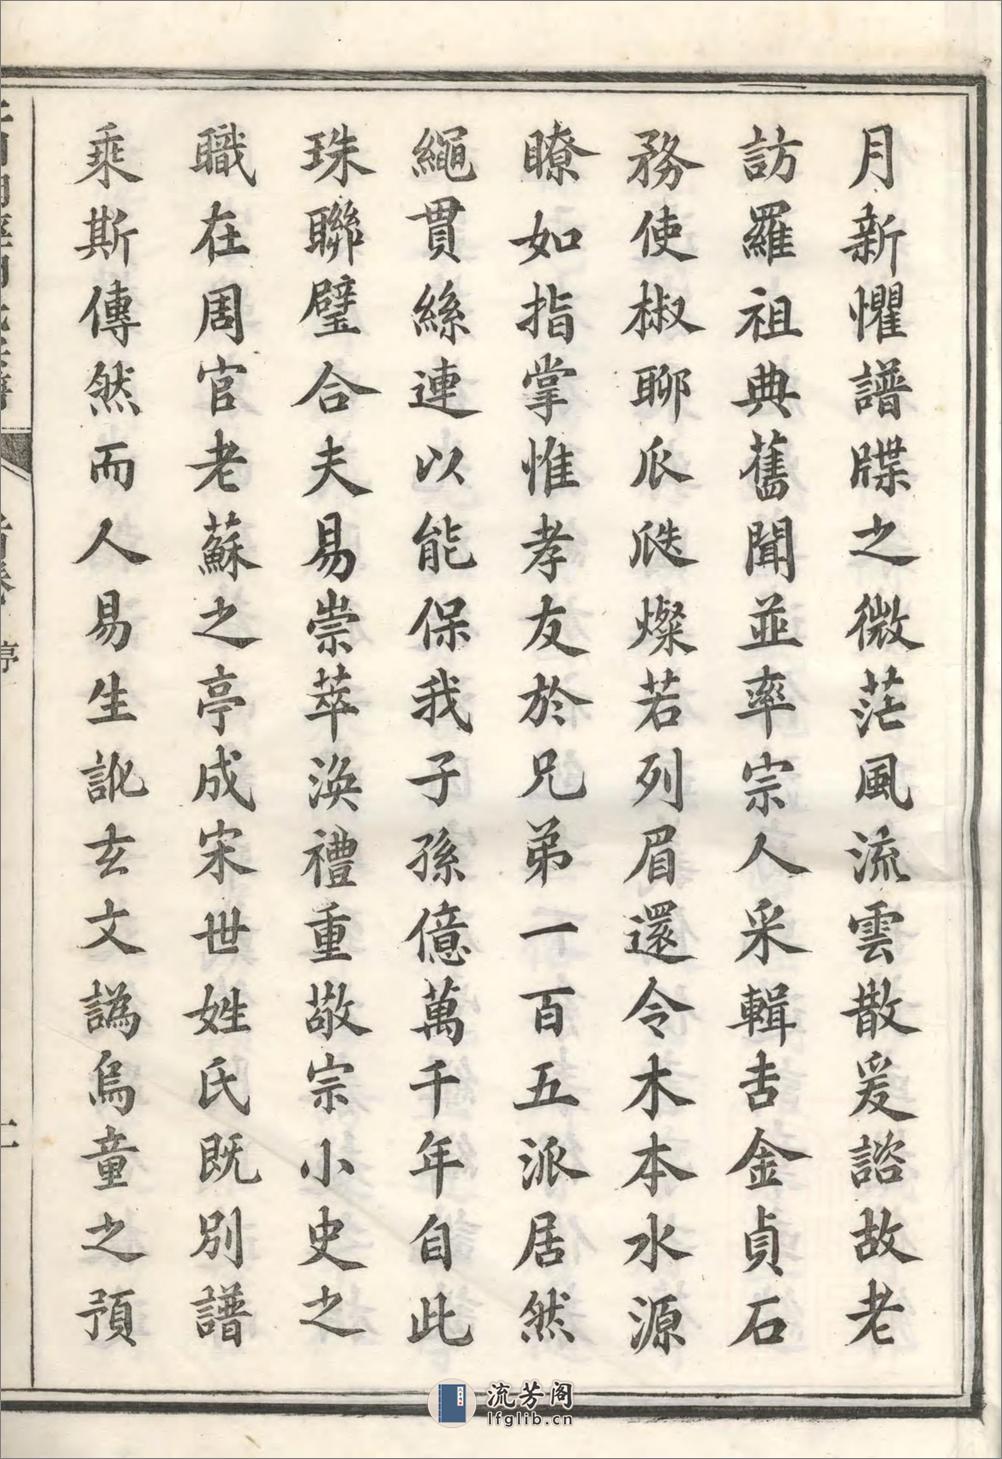 月新懼譜牒之微茫風流雲散爰諮故老
訪羅祖典舊聞並率宗人采輯吉金貞石
務使椒聊瓜瓞燦若列眉還令木本水源
瞭如指掌惟孝友於兄弟一百五派居然
繩貫絲連以能保我子孫億萬千年自此
珠聯璧合夫易崇萃渙禮重敬宗小史之
職在周官老蘇之亭成宋世姓氏既別譜
乘斯傳然而人易生訛玄文譌烏童之預
首卷 序
流芳阁
lfglib.cn